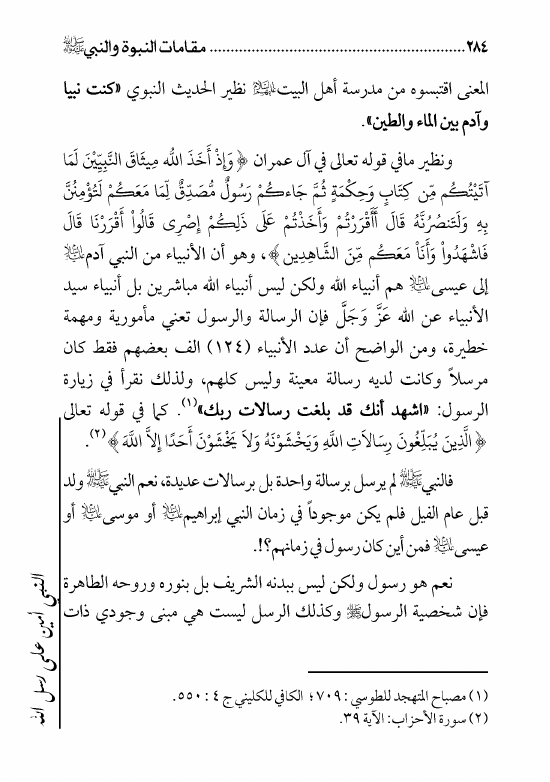 ٢٨٤ .............................................................. مقامات النبوة والنبي ﷺ
المعنى اقتبسوه من مدرسة أهل البيت عليهم السلام نظير الحديث النبوي «كنت نبيا
وآدم بين الماء والطين».
ونظير مافي قوله تعالى في آل عمران ﴿وَإِذْ أَخَذَ اللهُ مِيثَاقَ النَّبِيِّيْنَ لَمَا
آتَيْتُكُم مِّن كِتَابٍ وَحِكْمَةٍ ثُمَّ جَاءكُمْ رَسُولٌ مُّصَدِّقٌ لِّمَا مَعَكُمْ لَتُؤْمِنُنَّ
بِهِ وَلَتَنصُرُنَّهُ قَالَ أَأَقْرَرْتُمْ وَأَخَذْتُمْ عَلَى ذَلِكُمْ إِصْرِي قَالُواْ أَقْرَرْنَا قَالَ
فَاشْهَدُواْ وَأَنَاْ مَعَكُم مِّنَ الشَّاهِدِين﴾، وهو أن الأنبياء من النبي آدم عليه السلام
إلى عيسى عليه السلام هم أنبياء الله ولكن ليس أنبياء الله مباشرين بل أنبياء سيد
الأنبياء عن الله عَزَّ وَجَلَّ فإن الرسالة والرسول تعني مأمورية ومهمة
خطيرة، ومن الواضح أن عدد الأنبياء (١٢٤) الف بعضهم فقط كان
مرسلاً وكانت لديه رسالة معينة وليس كلهم، ولذلك نقرأ في زيارة
الرسول: «اشهد أنك قد بلغت رسالات ربك»(١). كما في قوله تعالى
﴿الَّذِينَ يُبَلِّغُونَ رِسَالَاتِ اللَّهِ وَيَخْشَوْنَهُ وَلَا يَخْشَوْنَ أَحَدًا إِلَّا اللَّهَ﴾(٢).
فالنبي ﷺ لم يرسل برسالة واحدة بل برسالات عديدة، نعم النبي ﷺ ولد
قبل عام الفيل فلم يكن موجوداً في زمان النبي إبراهيم عليه السلام أو موسى عليه السلام أو
عيسى عليه السلام فمن أين كان رسول في زمانهم؟!.
نعم هو رسول ولكن ليس ببدنه الشريف بل بنوره وروحه الطاهرة
فإن شخصية الرسول ﷺ وكذلك الرسل ليست هي مبنى وجودي ذات
النبي أمين على رسل الله
(١) مصباح المتهجد للطوسي: ٧٠٩؛ الكافي للكليني ج ٤: ٥٥٠.
(٢) سورة الأحزاب: الآية ٣٩.